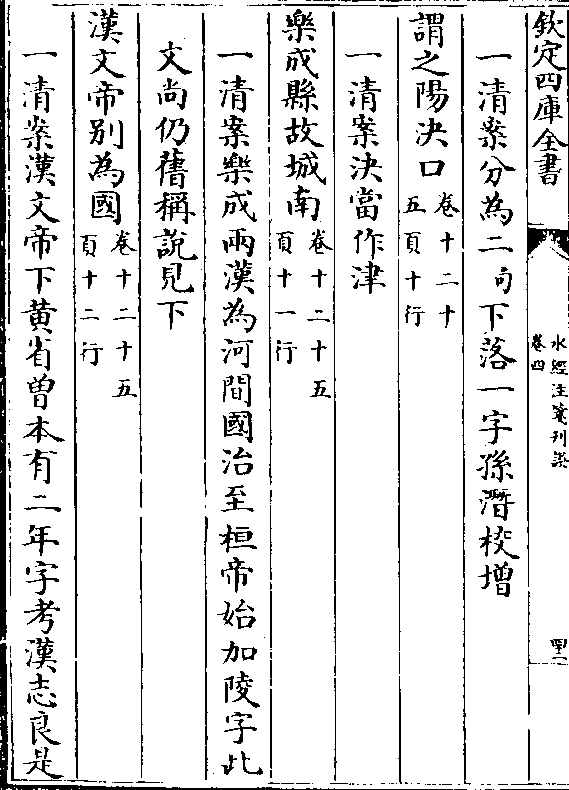 欽定四庫全書
水經注箋刊誤
卷四
一清案分為二句下落一字孫潛校增
謂之陽決口卷十二十
五頁十行
一清案決當作津
樂成縣故城南卷十二十五
頁十一行
一清案樂成兩漢為河間國治至桓帝始加陵字此
文尚仍舊稱說見下
漢文帝別為國卷十二十五
頁十二行
一清案漢文帝下黄省曾本有二年字考漢志良是